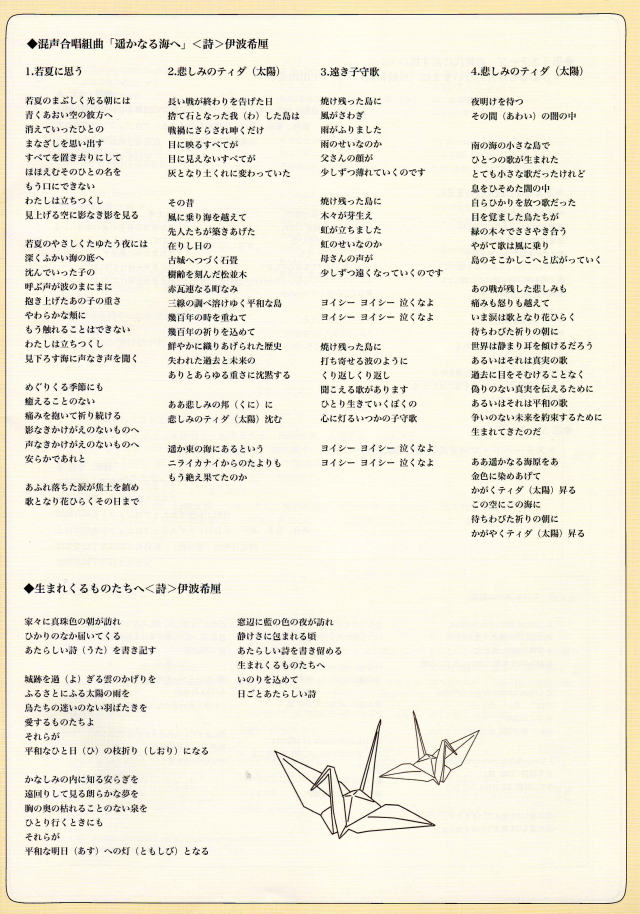 ◆混声合唱組曲「遥かなる海へ」＜詩＞伊波希厘
1.若夏に思う
若夏のまぶしく光る朝には
青くあおい空の彼方へ
消えていったひとの
まなざしを思い出す
すべてを置き去りにして
ほほえむそのひとの名を
もう口にできない
わたしは立ちつくし
見上げる空に影なき影を見る
若夏のやさしくたゆたう夜には
深くふかい海の底へ
沈んでいった子の
呼ぶ声が波のまにまに
抱き上げたあの子の重さ
やわらかな頬に
もう触れることはできない
わたしは立ちつくし
見下ろす海に声なき声を聞く
めぐりくる季節にも
癒えることのない
痛みを抱いて祈り続ける
影なきかけがえのないものへ
声なきかけがえのないものへ
安らかであれと
あふれ落ちた涙が焦土を鎮め
歌となり花ひらくその日まで
2.悲しみのティダ（太陽）
長い戦が終わりを告げた日
捨て石となった我（わ）した島は
戦禍にさらされ呻くだけ
目に映るすべてが
目に見えないすべてが
灰となり土くれに変わっていた
その昔
風に乗り海を越えて
先人たちが築きあげた
在りし日の
古城へつづく石畳
樹齢を刻んだ松並木
赤瓦連なる町なみ
三線の調べ溶けゆく平和な島
幾百年の時を重ねて
幾百年の祈りを込めて
鮮やかに織りあげられた歴史
失われた過去と未来の
ありとあらゆる重さに沈黙する
ああ悲しみの邦（くに）に
悲しみのティダ（太陽）沈む
遥か東の海にあるという
ニライカナイからのたよりも
もう絶え果てたのか
3.遠き子守歌
焼け残った島に
風がさわぎ
雨がふりました
雨のせいなのか
父さんの顔が
少しずつ薄れていくのです
焼け残った島に
木々が芽生え
虹が立ちました
虹のせいなのか
母さんの声が
少しずつ遠くなっていくのです
ヨイシー ヨイシー 泣くなよ
ヨイシー ヨイシー 泣くなよ
焼け残った島に
打ち寄せる波のように
くり返しくり返し
聞こえる歌があります
ひとり生きていくぼくの
心に灯るいつかの子守歌
ヨイシー ヨイシー 泣くなよ
ヨイシー ヨイシー 泣くなよ
4.悲しみのティダ（太陽）
夜明けを待つ
その間（あわい）の闇の中
南の海の小さな島で
ひとつの歌が生まれた
とても小さな歌だったけれど
息をひそめた闇の中
自らひかりを放つ歌だった
目を覚ました鳥たちが
緑の木々でささやき合う
やがて歌は風に乗り
島のそこかしこへと広がっていく
あの戦が残した悲しみも
痛みも怒りも越えて
いま涙は歌となり花ひらく
待ちわびた祈りの朝に
世界は静まり耳を傾けるだろう
あるいはそれは真実の歌
過去に目をそむけることなく
偽りのない真実を伝えるために
あるいはそれは平和の歌
争いのない未来を約束するために
生まれてきたのだ
ああ遥かなる海原をあ
金色に染めあげて
かがくティダ（太陽）昇る
この空にこの海に
待ちわびた祈りの朝に
かがやくティダ（太陽）昇る
◆生まれくるものたちへ＜詩＞伊波希厘
家々に真珠色の朝が訪れ
ひかりのなか届いてくる
あたらしい詩（うた）を書き記す
城跡を過（よ）ぎる雲のかげりを
ふるさとにふる太陽の雨を
鳥たちの迷いのない羽ばたきを
愛するものたちよ
それらが
平和なひと日（ひ）の枝折り（しおり）になる
かなしみの内に知る安らぎを
遠回りして見る朗らかな夢を
胸の奥の枯れることのない泉を
ひとり行くときにも
それらが
平和な明日（あす）への灯（ともしび）となる
窓辺に藍の色の夜が訪れ
静けさに包まれる頃
あたらしい詩を書き留める
生まれくるものたちへ
いのりを込めて
日ごとあたらしい詩